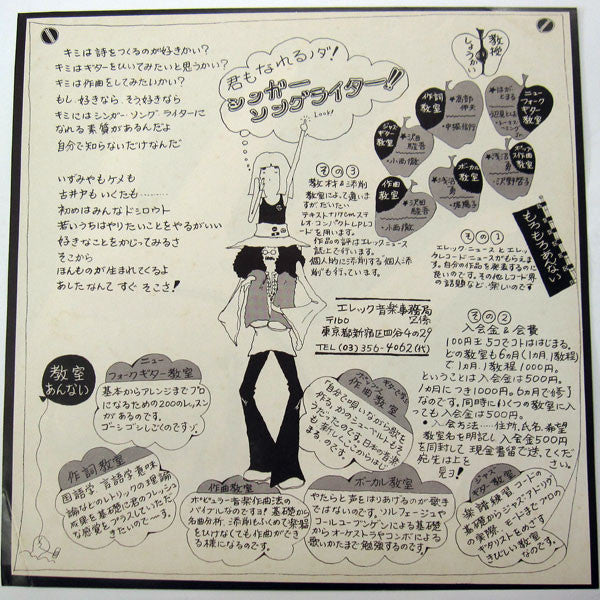 キミは詩をつくるのが好きかい?
キミはギターをひいてみたいと思うかい?
キミは作曲をしてみたいかい?
もし好きなら、そう好きなら
キミにはシンガー・ソングライターに
なれる素質があるんだよ
自分で知らないだけなんだ
いずみやもケメも
古井戸もいくたも………
初めはみんなドシロウト
若いうちはやりたいことをやるがいい
好きなことをかじってみるさ
そこから
ほんものが生まれてくるよ
あしたなんて すぐ そこさ!
君もなれるノダ!
シンガー
ソングライター!!
Look!
教授
しょうかい
作詞
教室
ニュー
フォーク
ギター
教室
ジャズ
ギター
教室
ボーカル
教室
作曲
教室
もろもろあんない
その3
教材&添削
教室によって違います
がだいたい
テキストと17cmステ
レオ・コンパクトLPレコ
ードを用います。
作品の評はエレックニュース
誌上で行います。
個人的に添削する個人添
削も行っています。
その1
エレックニュースとエレッ
クレコードニュースがもらえま
す。自分の作品を発表するのに
良いのです。その他レコード界
の話題など…楽しいのです
エレック音楽事務局
〒160 Z係
東京都新宿区四谷4の29
TEL(03)356-4062(代)
その2
入会金&会費
100円玉5コでコトははじまる。
どの教室も6ヵ月(1ヵ月1教程)
で1ヵ月1教程1000円。
ということは入会金は500円。
1ヵ月につき1000円。6ヵ月で修了
なのです。同時にいくつの教室に入
っても入会金は500円。
●入会方法……住所、氏名、希望
教室名を明記し入会金500円
を同封して現金書留で送ってくだ
宛先は上を
見ヨ!
教室
あんない
ニュー
フォークギター教室
基本からアレンジまでプロ
になるための200のレッスン
があるのです。
ゴーシゴシしごくのですゾ。
作詞教室
国語学、言語学、意味
論などのレトリックの理論
成果を基礎に君のフレッシュ
な感覚をプラスしていただ
きたいのでーす。
作曲教室
ポピュラー音楽作曲法の
バイブルなのですヨ!基礎から
名曲分析、添削もふくめて楽器
をひけなくても作曲ができ
る様になるのです。
作曲教室
ボーカル教室
やたらと声をはりあげるのが歌手
ではないのです。ソルフェージュや
コールユーブンゲンによる基礎
からオーケストラやコンボによる
歌いかたまで勉強するのです。
ジャズ
ギター教室
楽譜練習、コードの
基礎からジャズ・アドリヴ
の実際、モードまでプロの
ギタリストをめざす
きびしい教室
なのです。